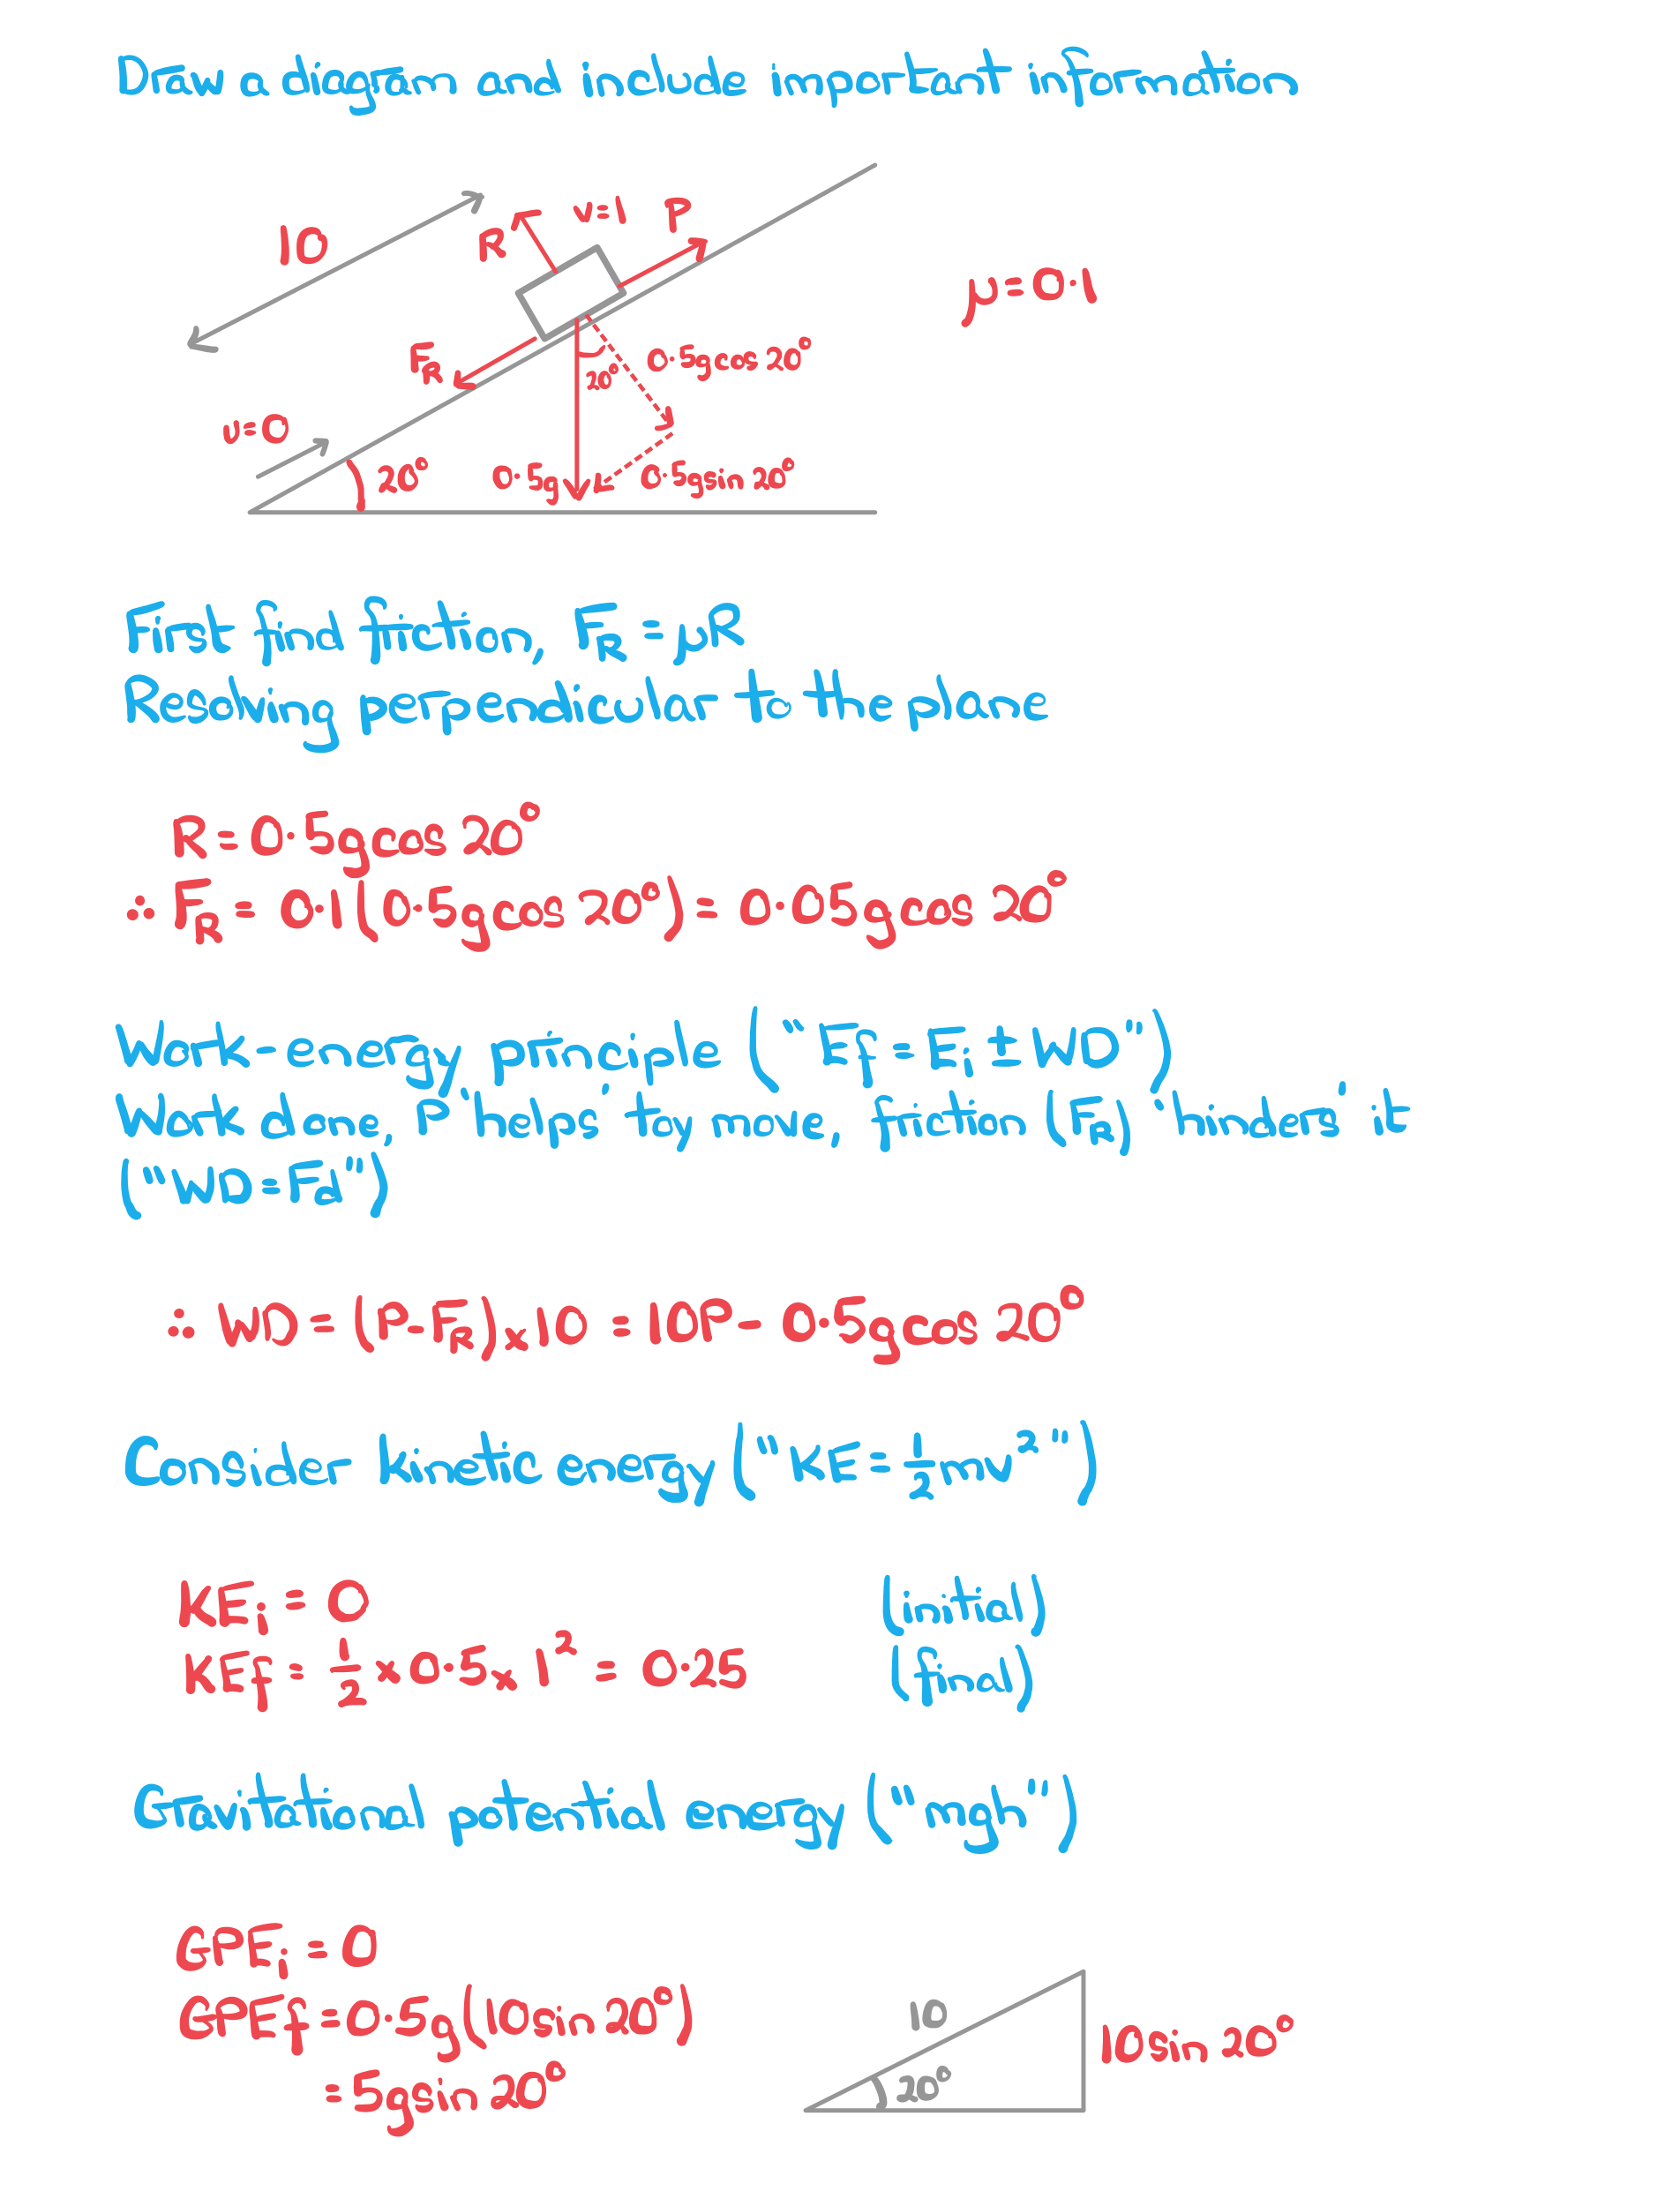 Draw a diagram and include important information
10
R
v=1
P
μ=0·1
F_R
20°
0·5gcos 20°
u=0
20°
0·5g
0·5gsin 20°
First find friction, F_R = μR
Resolving perpendicular to the plane
R = 0·5gcos 20°
∴ F_R = 0·1(0·5gcos 20°) = 0·05gcos 20°
Work-energy principle ("E_f = E_i ± WD")
Work done, P 'helps' toy move, friction (F_R) 'hinders' it
("WD=Fd")
∴ WD = (P-F_R)×10 = 10P - 0·5gcos 20°
Consider kinetic energy ("KE = ½mv²")
KE_i = 0 (initial)
KE_f = ½ × 0·5 × 1² = 0·25 (final)
Gravitational potential energy ("mgh")
GPE_i = 0
GPE_f = 0·5g(10sin 20°)
= 5gsin 20°
10
20°
10sin 20°